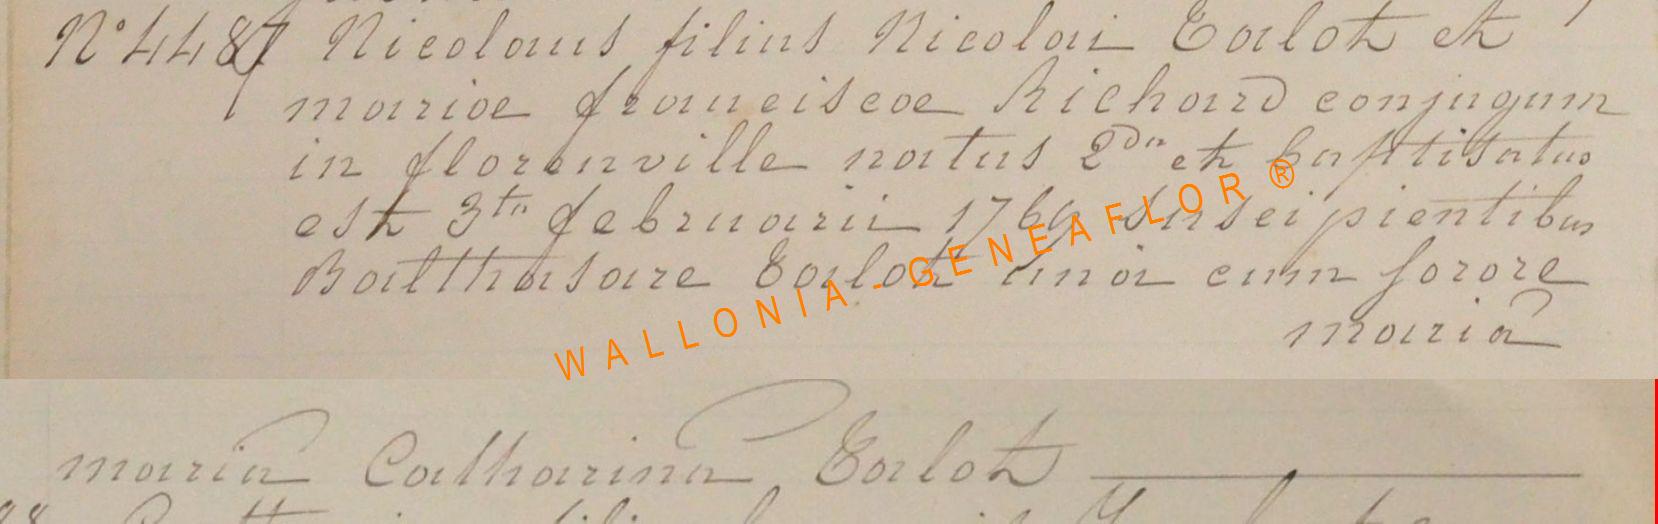 N° 4487 Nicolaus filius Nicolai Talot et
mariae franciscae Richard conjugum
in florenville natus 2da et baptisatus
est 3tia februarii 1769 suscipientibus
Balthasare Talot una cum sorore
maria
WALLONIA-GENEAFLOR®
maria Catharina Talot